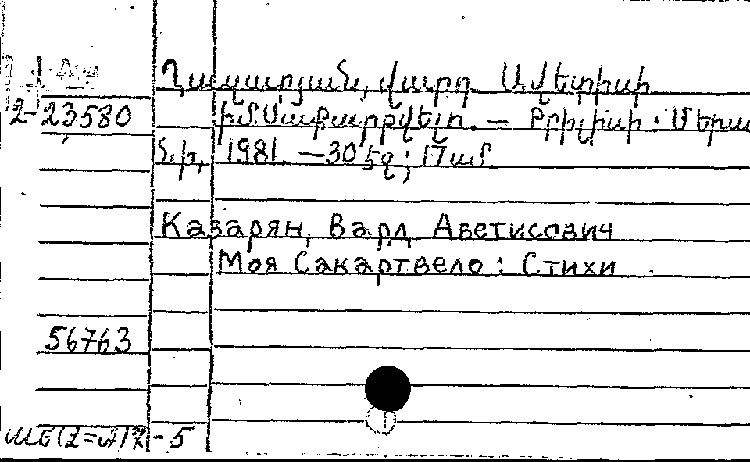 Ղազարյան, Վարդ Ավետիսի
2-23580 Իմ Սաքարթվելո. — Թբիլիսի : Մերա
նի, 1981. — 30 էջ ; 17սմ.
Казарян, Вард Аветисович
Моя Сакартвело : Стихи
56763